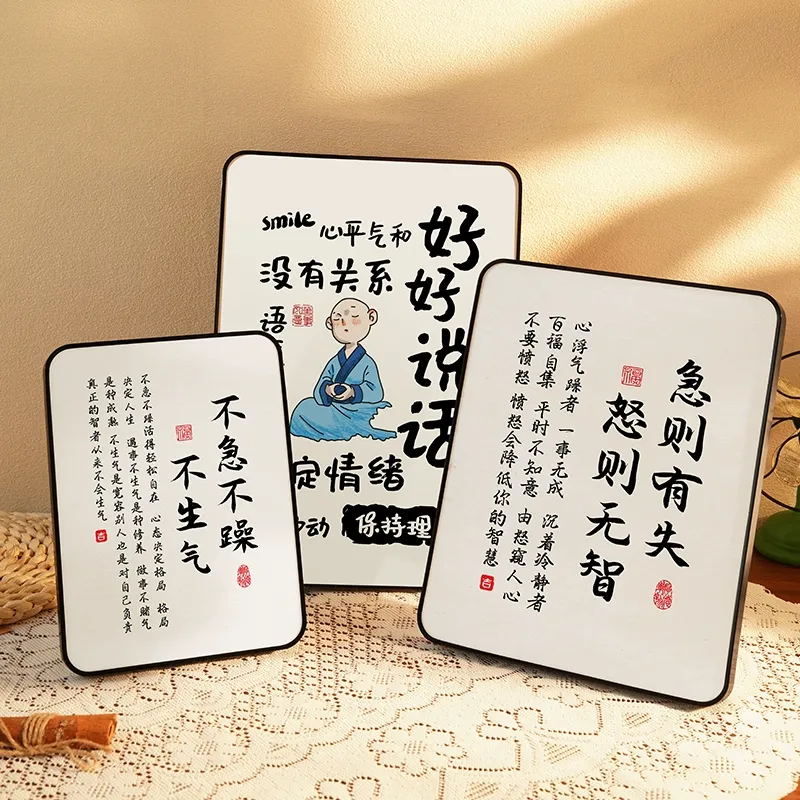 不急不躁
不生气
不急不躁活得轻松自在 心态决定格局 格局
决定人生 遇事不生气是种修养 做事不赌气
是种成熟 不生气是宽容别人也是对自己负责
真正的智者从来不会生气
吉
smile
心平气和
好好说话
没有关系
语
定情绪
动
保持理
急则有失
怒则无智
心浮气躁者 一事无成 沉着冷静者
百福自集 平时不知意 由怒窥人心
不要愤怒 愤怒会降低你的智慧
吉